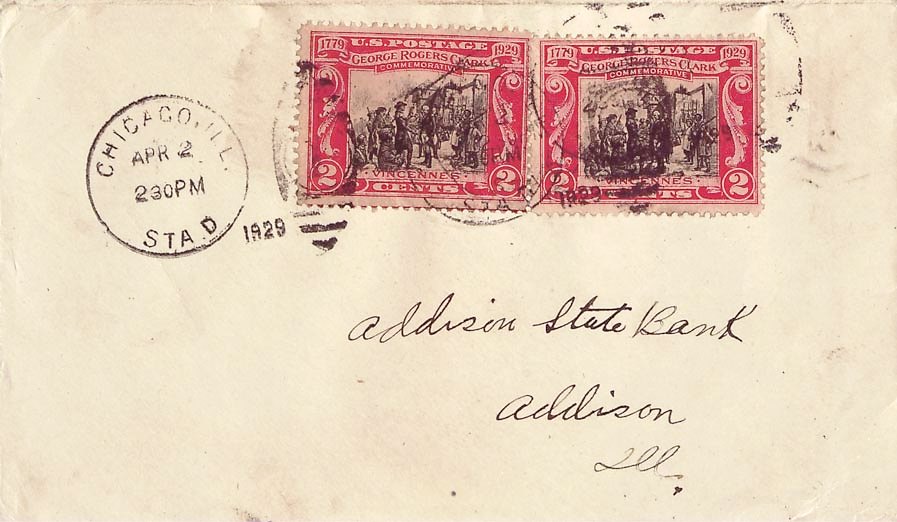 1779 U.S. POSTAGE 1929
GEORGE ROGERS CLARK
COMMEMORATIVE
VINCENNES
2 CENTS 2
1779 U.S. POSTAGE 1929
GEORGE ROGERS CLARK
COMMEMORATIVE
VINCENNES
2 CENTS 2
CHICAGO, ILL.
APR 2
230PM
STA D
1929
1929
Addison State Bank
Addison
Ill.